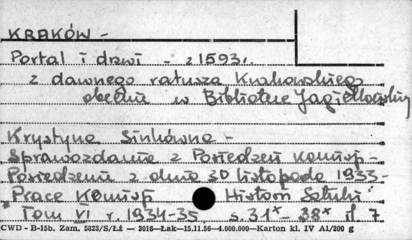 KRAKÓW -
Portal i drzwi - z 1593 r.
z dawnego ratusza Krakowskiego
obecnie w Bibliotece Jagiellońskiej
Krystyna Sinkówna -
Sprawozdanie z Posiedzeń Komisji -
Posiedzenie z dnia 30 listopada 1933 -
"Prace Komisji Historii Sztuki"
Tom VI r. 1934-35, s. 31* - 38* il. 7
CWD - B-15b. Zam. 5823/S/ŁŻ — 3016—Łak—15.11.56—4.000.000—Karton kl. IV A1/200 g